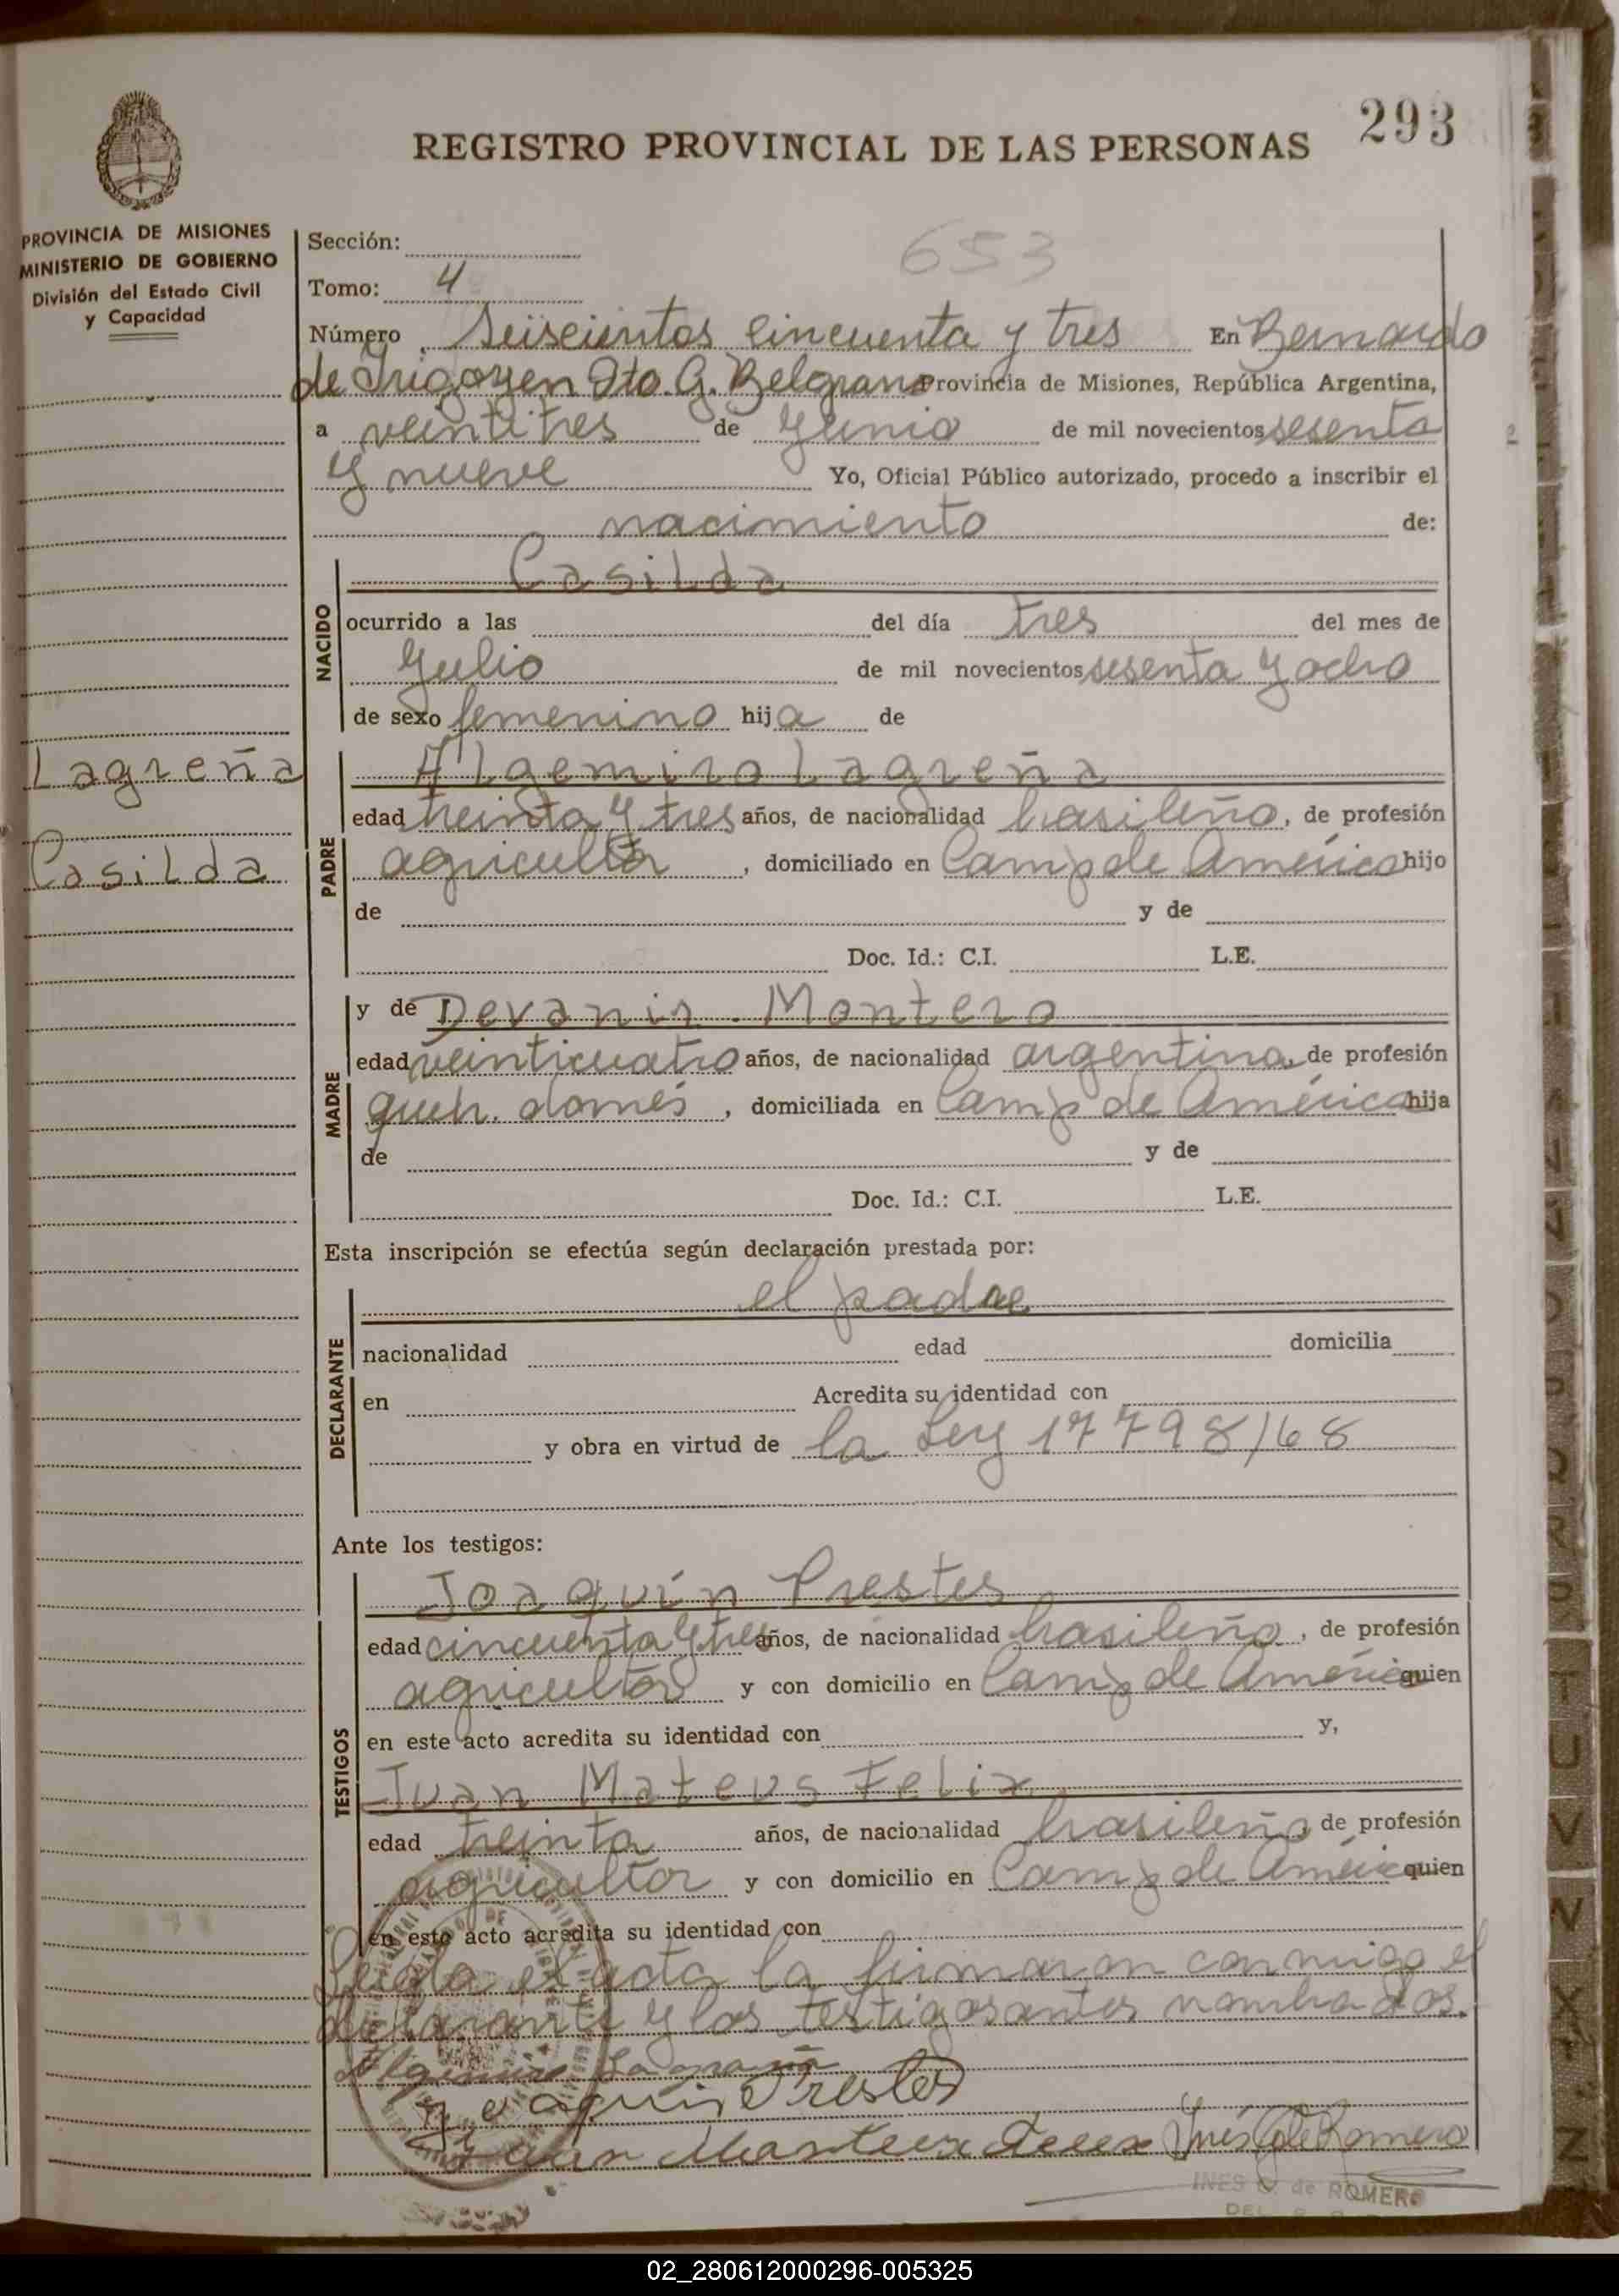 293
REGISTRO PROVINCIAL DE LAS PERSONAS
PROVINCIA DE MISIONES
MINISTERIO DE GOBIERNO
División del Estado Civil
y Capacidad
653
Sección:
Tomo: 4
Número Seiscientos cincuenta y tres En Bernardo
de Irigoyen Dto. G. Belgrano Provincia de Misiones, República Argentina,
a veintitres de Junio de mil novecientos sesenta
y nueve Yo, Oficial Público autorizado, procedo a inscribir el
nacimiento de:
NACIDO
Casilda
ocurrido a las del día tres del mes de
Julio de mil novecientos sesenta y ocho
de sexo femenino hija de
Lagreña
Casilda
PADRE
Algemiro Lagreña
edad treinta y tres años, de nacionalidad brasileño, de profesión
agricultor, domiciliado en Camp de América hijo
de y de
Doc. Id.: C.I. L.E.
MADRE
y de Devanir Montero
edad veinticuatro años, de nacionalidad argentina, de profesión
queh. domés, domiciliada en Camp de América hija
de y de
Doc. Id.: C.I. L.E.
Esta inscripción se efectúa según declaración prestada por:
DECLARANTE
el padre
nacionalidad edad domicilia
en Acredita su identidad con
y obra en virtud de la Ley 17798/68
Ante los testigos:
TESTIGOS
Joaquín Prestes
edad cincuenta y tres años, de nacionalidad brasileño, de profesión
agricultor y con domicilio en Camp de América quien
en este acto acredita su identidad con y,
Juan Mateus Felix
edad treinta años, de nacionalidad brasileño, de profesión
agricultor y con domicilio en Camp de América quien
en este acto acredita su identidad con
Leida el acta la firmaron conmigo el
declarante y los testigos antes nombrados.
Joaquin Prestes
Inés G de Romero
INES G. de ROMERO
02_280612000296-005325